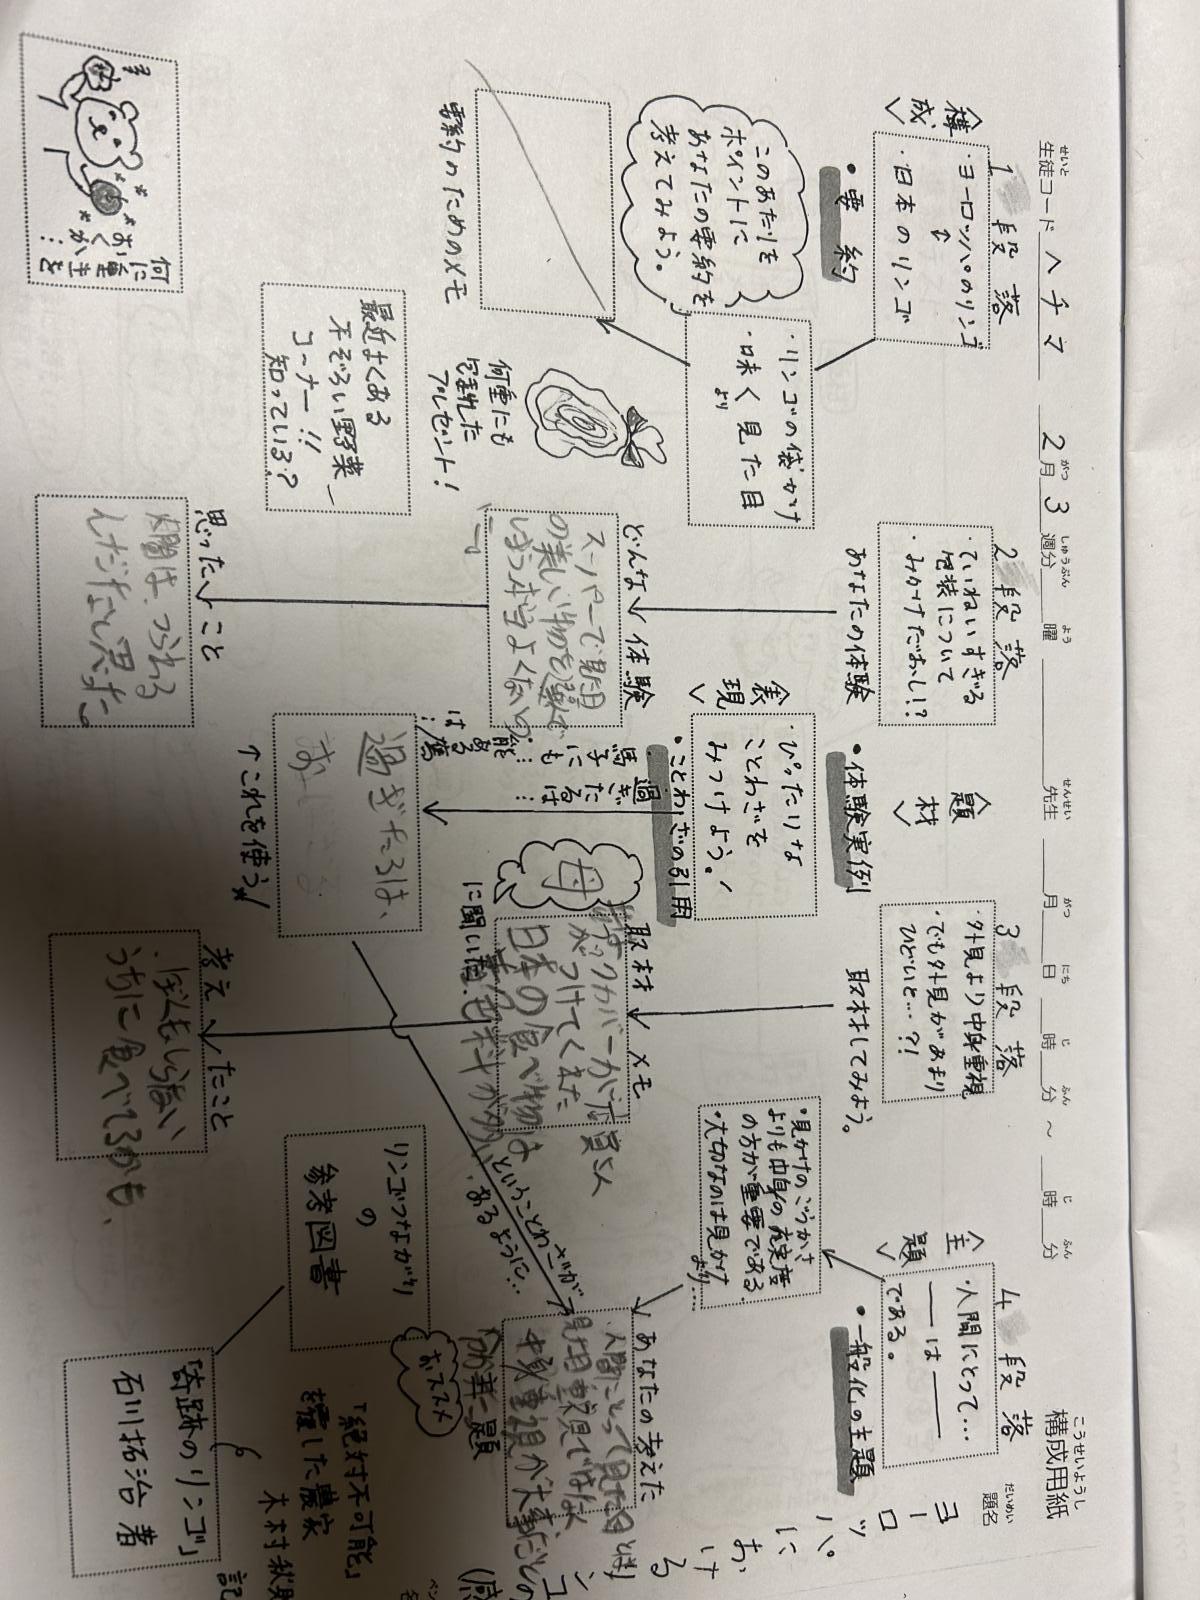 こうせいようし
構成用紙
だいめい
題名
ヨーロッパにおける
せいと
生徒コード ヘチマ 2月3週分 曜 先生 月 日 時 分 ~ 時 分
<構成>
1段落
・ヨーロッパのリンゴ
↕
・日本のリンゴ
・リンゴの袋かけ
・味より見た目
・要約
このあたりを
ポイントに
あなたの要約を
考えてみよう。
要約のためのメモ
何重にも
包まれた
プレゼント!
最近よくある
不ぞろい野菜
コーナー!!
知っている?
何に重きを
おくか…
2段落
・ていねいすぎる
包装について
・みかけだおし!?
あなたの体験
どんな体験
スーパーで見た目
の美しい物を選んで
思ったこと
人間は、つられる
んだなと思った。
<題材>
・体験実例
<表現>
・ぴったりな
ことわざを
みつけよう!
・ことわざの引用
過ぎたるは…
馬子にも…
能ある鷹は…
過ぎたるは、
↑これを使う
3段落
・外見より中身重視
・でも外見があまり
ひどいと…?!
取材してみよう。
取材メモ
母に聞いた
日本の食べ物は
考えたこと
・ぼくもしらない
うちに食べてるかも、
ということわざが
あるように…
リンゴつながり
の
参考図書
「奇跡のリンゴ」
石川拓治 著
おススメ
「絶対不可能」
を覆した農家
<主題>
4段落
・人間にとって…
――は――
である。
・一般化の主題
・見かけのごうかさ
よりも中身の充実度
の方が重要である
・大切なのは見かけ
より…
あなたの考えた
第二主題